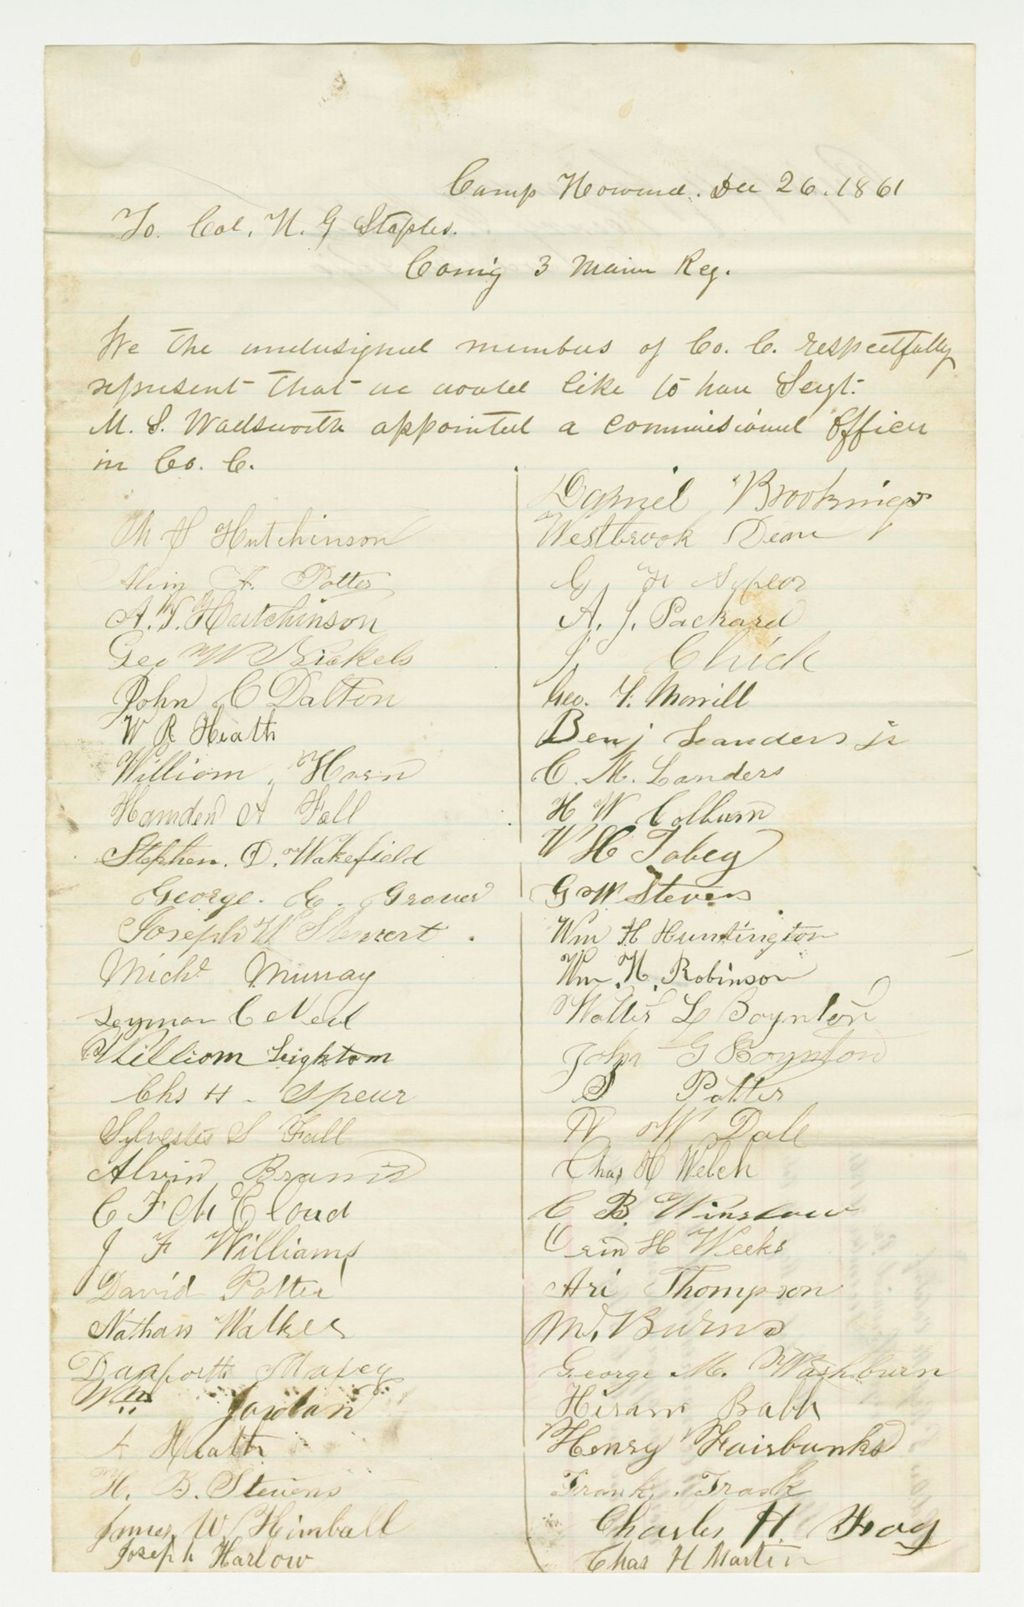 Camp Howard. Dec 26. 1861
To. Col. H. G Staples.
Comg 3 Maine Reg.
We the undersigned members of Co. C. respectfully
represent that we would like to have Sergt.
M. S. Wadsworth appointed a commissioned Officer
in Co. C.
M S Hutchinson
A. Potter
A. T. Hutchinson
Geo W Nickels
John C Dalton
W R Heath
William Horn
Hamden A Fall
Stephen. D. Wakefield
George. E. Grover
Joseph W Stewart.
Michl Murray
Seymor C Neil
William Lightom
Chs H. Spear
Sylvester S Fall
Alvin Brann
C F McCloud
J F Williams
David Potter
Nathan Walker
Danforth Maxey
Wm Jordan
A Heath
H. B. Stevens
James W Kimball
Joseph Harlow
Daniel Brookings
Westbrook Dean
G. H Spear
A. J. Packard
J. Chick
Geo. F. Morrill
Benj Landers jr
C. M. Landers
H W Colburn
W H Tobey
G W Stevens
Wm H Huntington
Wm. H. Robinson
Walter L Boynton
John G Boynton
S Potter
N W Dale
Chas H Welch
C B. Winslow
Orin H Weeks
Ari Thompson
M. Burns
George M. Washburn
Hiram Babb
Henry Fairbanks
Frank. Trask
Charles H Foy
Chas H Martin